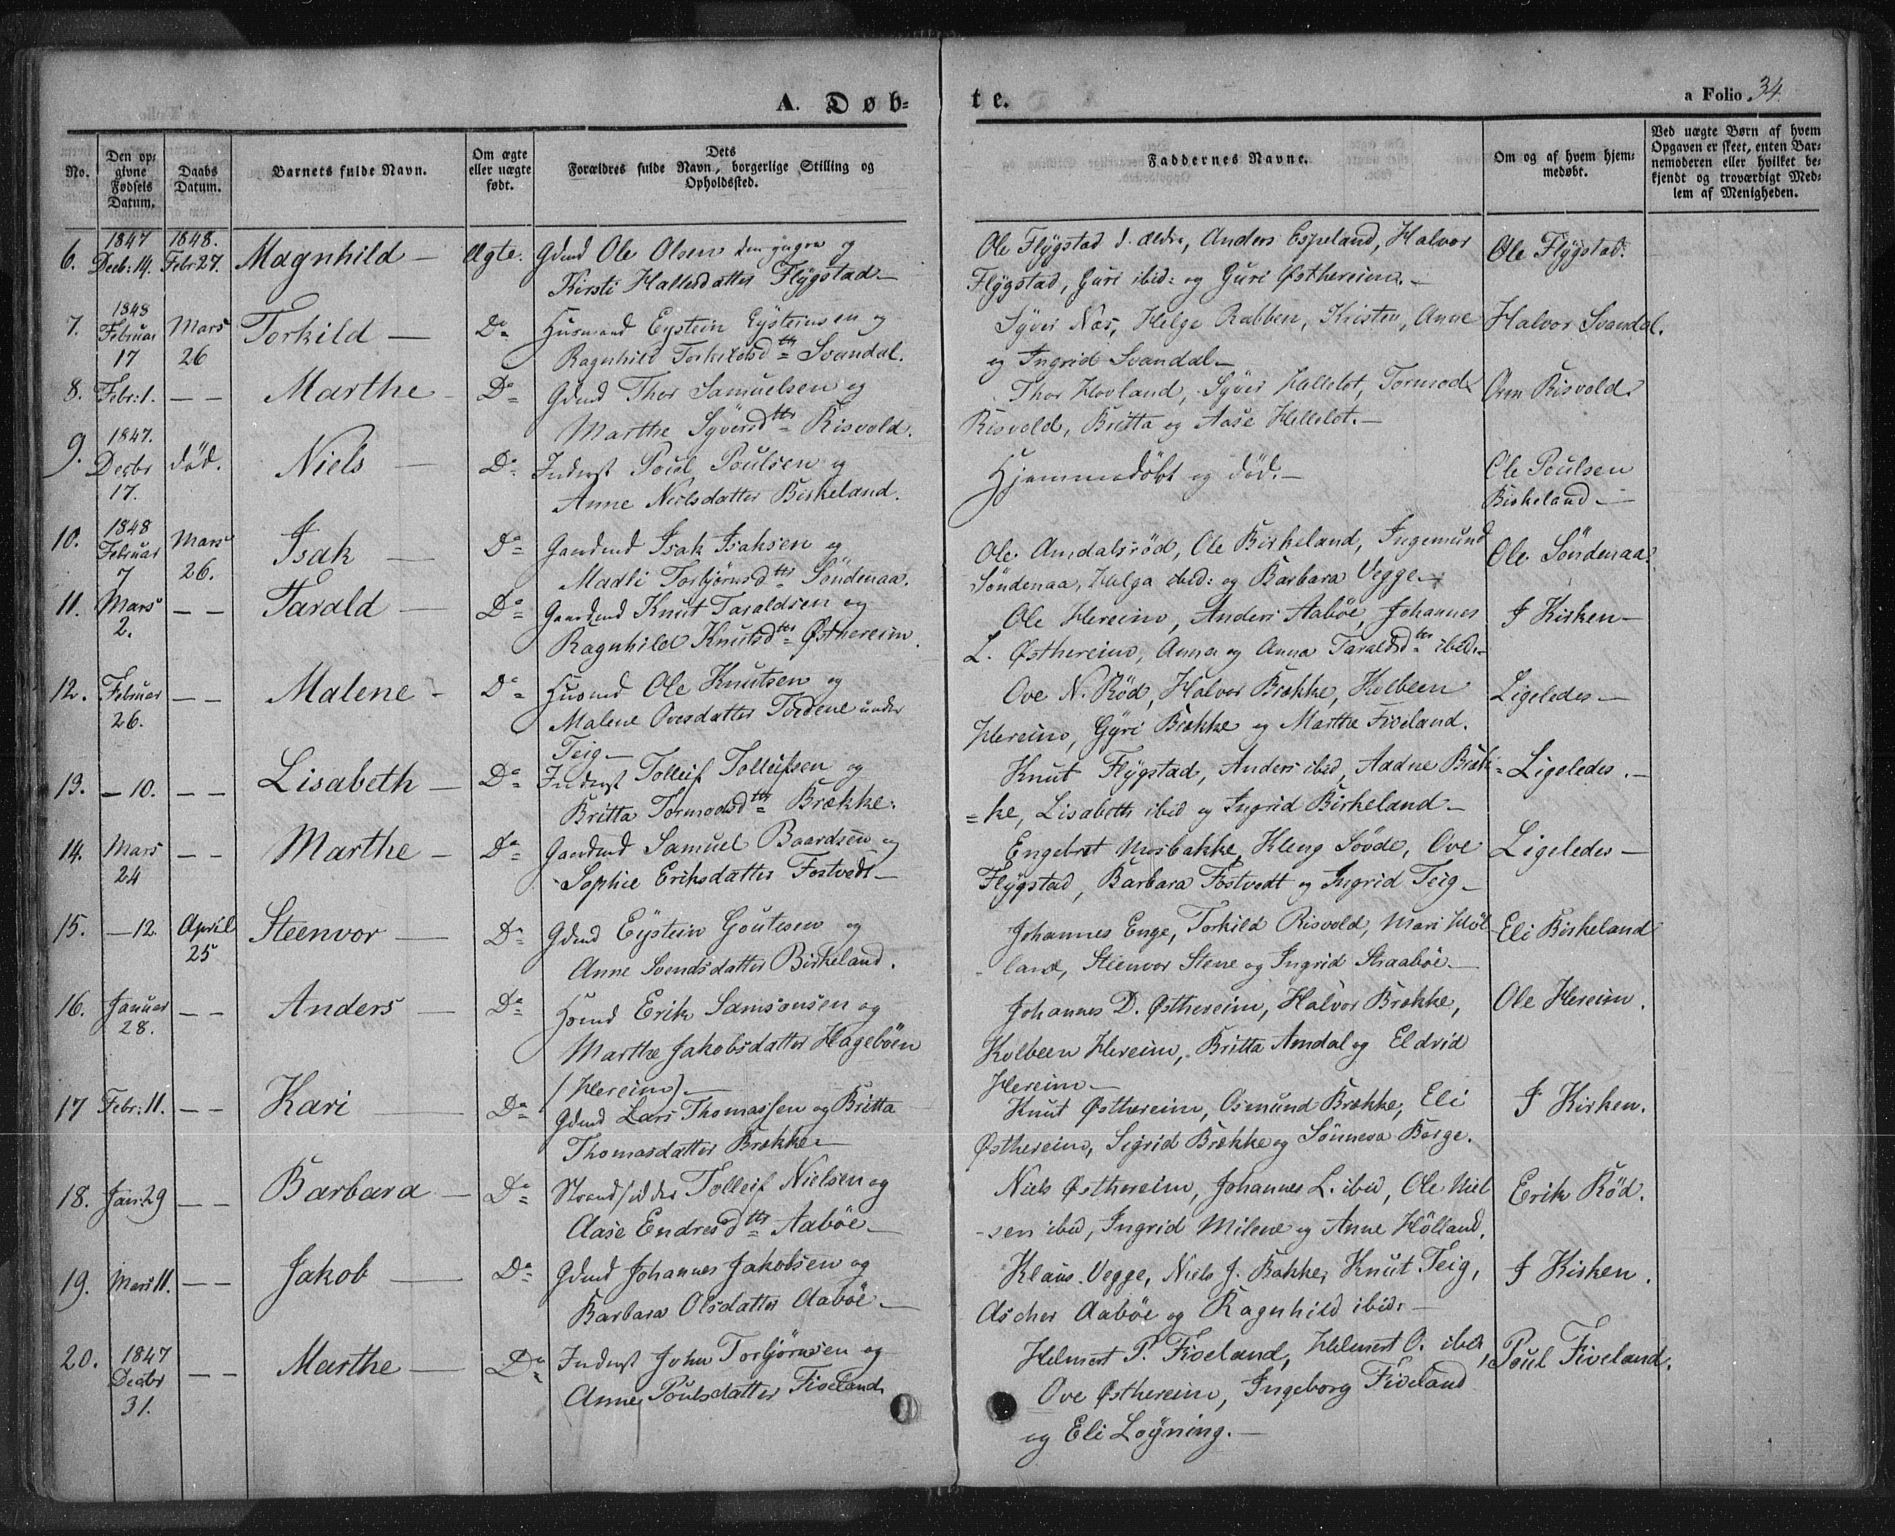 A. Døb-
te.
a Folio 34.
No.
Den op-
givne
Fødsels
Datum.
Daabs
Datum.
Barnets fulde Navn.
Om ægte
eller uægte
født.
Dets
Forældres fulde Navn, borgerlige Stilling og
Opholdssted.
Faddernes Navne.
Om og af hvem hjem-
medøbt.
Ved uægte Børn af hvem
Opgaven er skeet, enten Bar-
nemoderen eller hvilket be-
kjendt og troværdigt Med-
lem af Menigheden.
1847 1848.
6. Decb: 19. Febr 27. Magnhild — Ægte. Gdmd Ole Olsen den yngre og
Kirsti Hallesdatter Flÿgstad —
Ole Flÿgstad d. ældre, Anders Espeland, Halvor
Flÿgstad, Guri ibid: og Guri Østhereim. —
Ole Flÿgstad.
1848
7. Februar Mars Torkild — Do Husmand Eÿstein Eÿsteinsen og
17 26 Ragnhild Torkildsdtr Svandal.
Sÿver Næs, Helge Rabben, Kristen, Anne
og Ingrid Svandal —
Halvor Svandal.
8. Febr: 1. — — Marthe — Do Gdmd Thor Samuelsen og
Marthe Sÿversdtr Risvold.
Thor Hovland, Sÿver Helleløt, Tormod
Risvold, Britta og Aase Helleløt. —
Orm Risvold.
1847.
9. Decbr død. Niels — Do Inderst Poul Poulsen og
17. Anne Nielsdatter Birkeland.
Hjemmedøbt og død. —
Ole Poulsen
Birkeland —
1848
10. Februar Mars Isak — Do Gaardmd Isak Isaksen og
7 26. Marti Torbjörnsdtr Söndenaa.
Ole Amdalsröd, Ole Birkeland, Ingemund
Söndenaa, Helga ibid: og Barbara Vegge —
Ole Söndenaa.
11. Mars — — Tarald — Do Gaardmd Knut Taraldsen og
2. Ragnhild Knutsdtr Østhereim.
Ole Hereim, Anders Aaböe, Johannes
L. Østhereim, Anna og Anna Taraldsdtr ibid: —
I Kirken —
12. Februar — — Malene — Do Husmd Ole Knutsen og
26. Malene Ovesdatter Tordene under
Teig —
Ove N. Röd, Halvor Brække, Kolbeen
Hereim, Gÿri Brække og Marthe Fiveland.
Ligeledes —
13. — 10. — — Lisabeth — Do Inderst Tolleif Tolleifsen og
Britta Tormodsdtr Brække.
Knut Flÿgstad, Anders ibid, Aadne Bræk=
=ke, Lisabeth ibid og Ingrid Birkeland —
Ligeledes. —
14. Mars — — Marthe — Do Gaardmd Samuel Baardsen og
24 Sophie Eriksdatter Fostvedt —
Engebret Mosbakke, Kleng Sövde, Ove
Flÿgstad, Barbara Fostvedt og Ingrid Teig —
Ligeledes —
15. — 12. April Steenvor — Do Gdmd Eÿstein Goutesen og
25 Anne Svendsdatter Birkeland.
Johannes Enge, Torkild Risvold, Mari Höl-
land, Steenvor Stene og Ingrid Straaböe —
Eli Birkeland
16. Januar — — Anders — Do Hsmd Erik Samsonsen og
28. Marthe Jakobsdatter Hageböen
(Hereim) —
Johannes D. Østhereim, Halvor Brække,
Kolbeen Hereim, Britta Amdal og Eldrid
Hereim —
Ole Hereim.
17 Febr: 11. — — Kari — Do Gdmd Lars Thomassen og Britta
Thomasdatter Brække —
Knut Østhereim, Osmund Brække, Eli
Østhereim, Sigrid Brække og Sönneva Berge.
I Kirken.
18. Jan: 29 — — Barbara — Do Strandsidder Tolleif Nielsen og
Aase Endresdtr Aaböe —
Niels Østhereim, Johannes L. ibid, Ole Niel
-sen ibid, Ingrid Milene og Anne Hölland.
Erik Röd.
19. Mars 11. — — Jakob — Do Gdmd Johannes Jakobsen og
Barbara Olsdatter Aaböe —
Klaus Vegge, Niels J. Bakke, Knut Teig,
Ascher Aaböe og Ragnhild ibid: —
I Kirken.
20. 1847
Decbr — — Marthe — Do Inderst John Torbjörnsen og
31. Anne Poulsdatter Fiveland
Helmert P. Fiveland, Helmert O. ibid,
Ove Østhereim, Ingeborg Fiveland
og Eli Löÿning. —
Poul Fiveland.